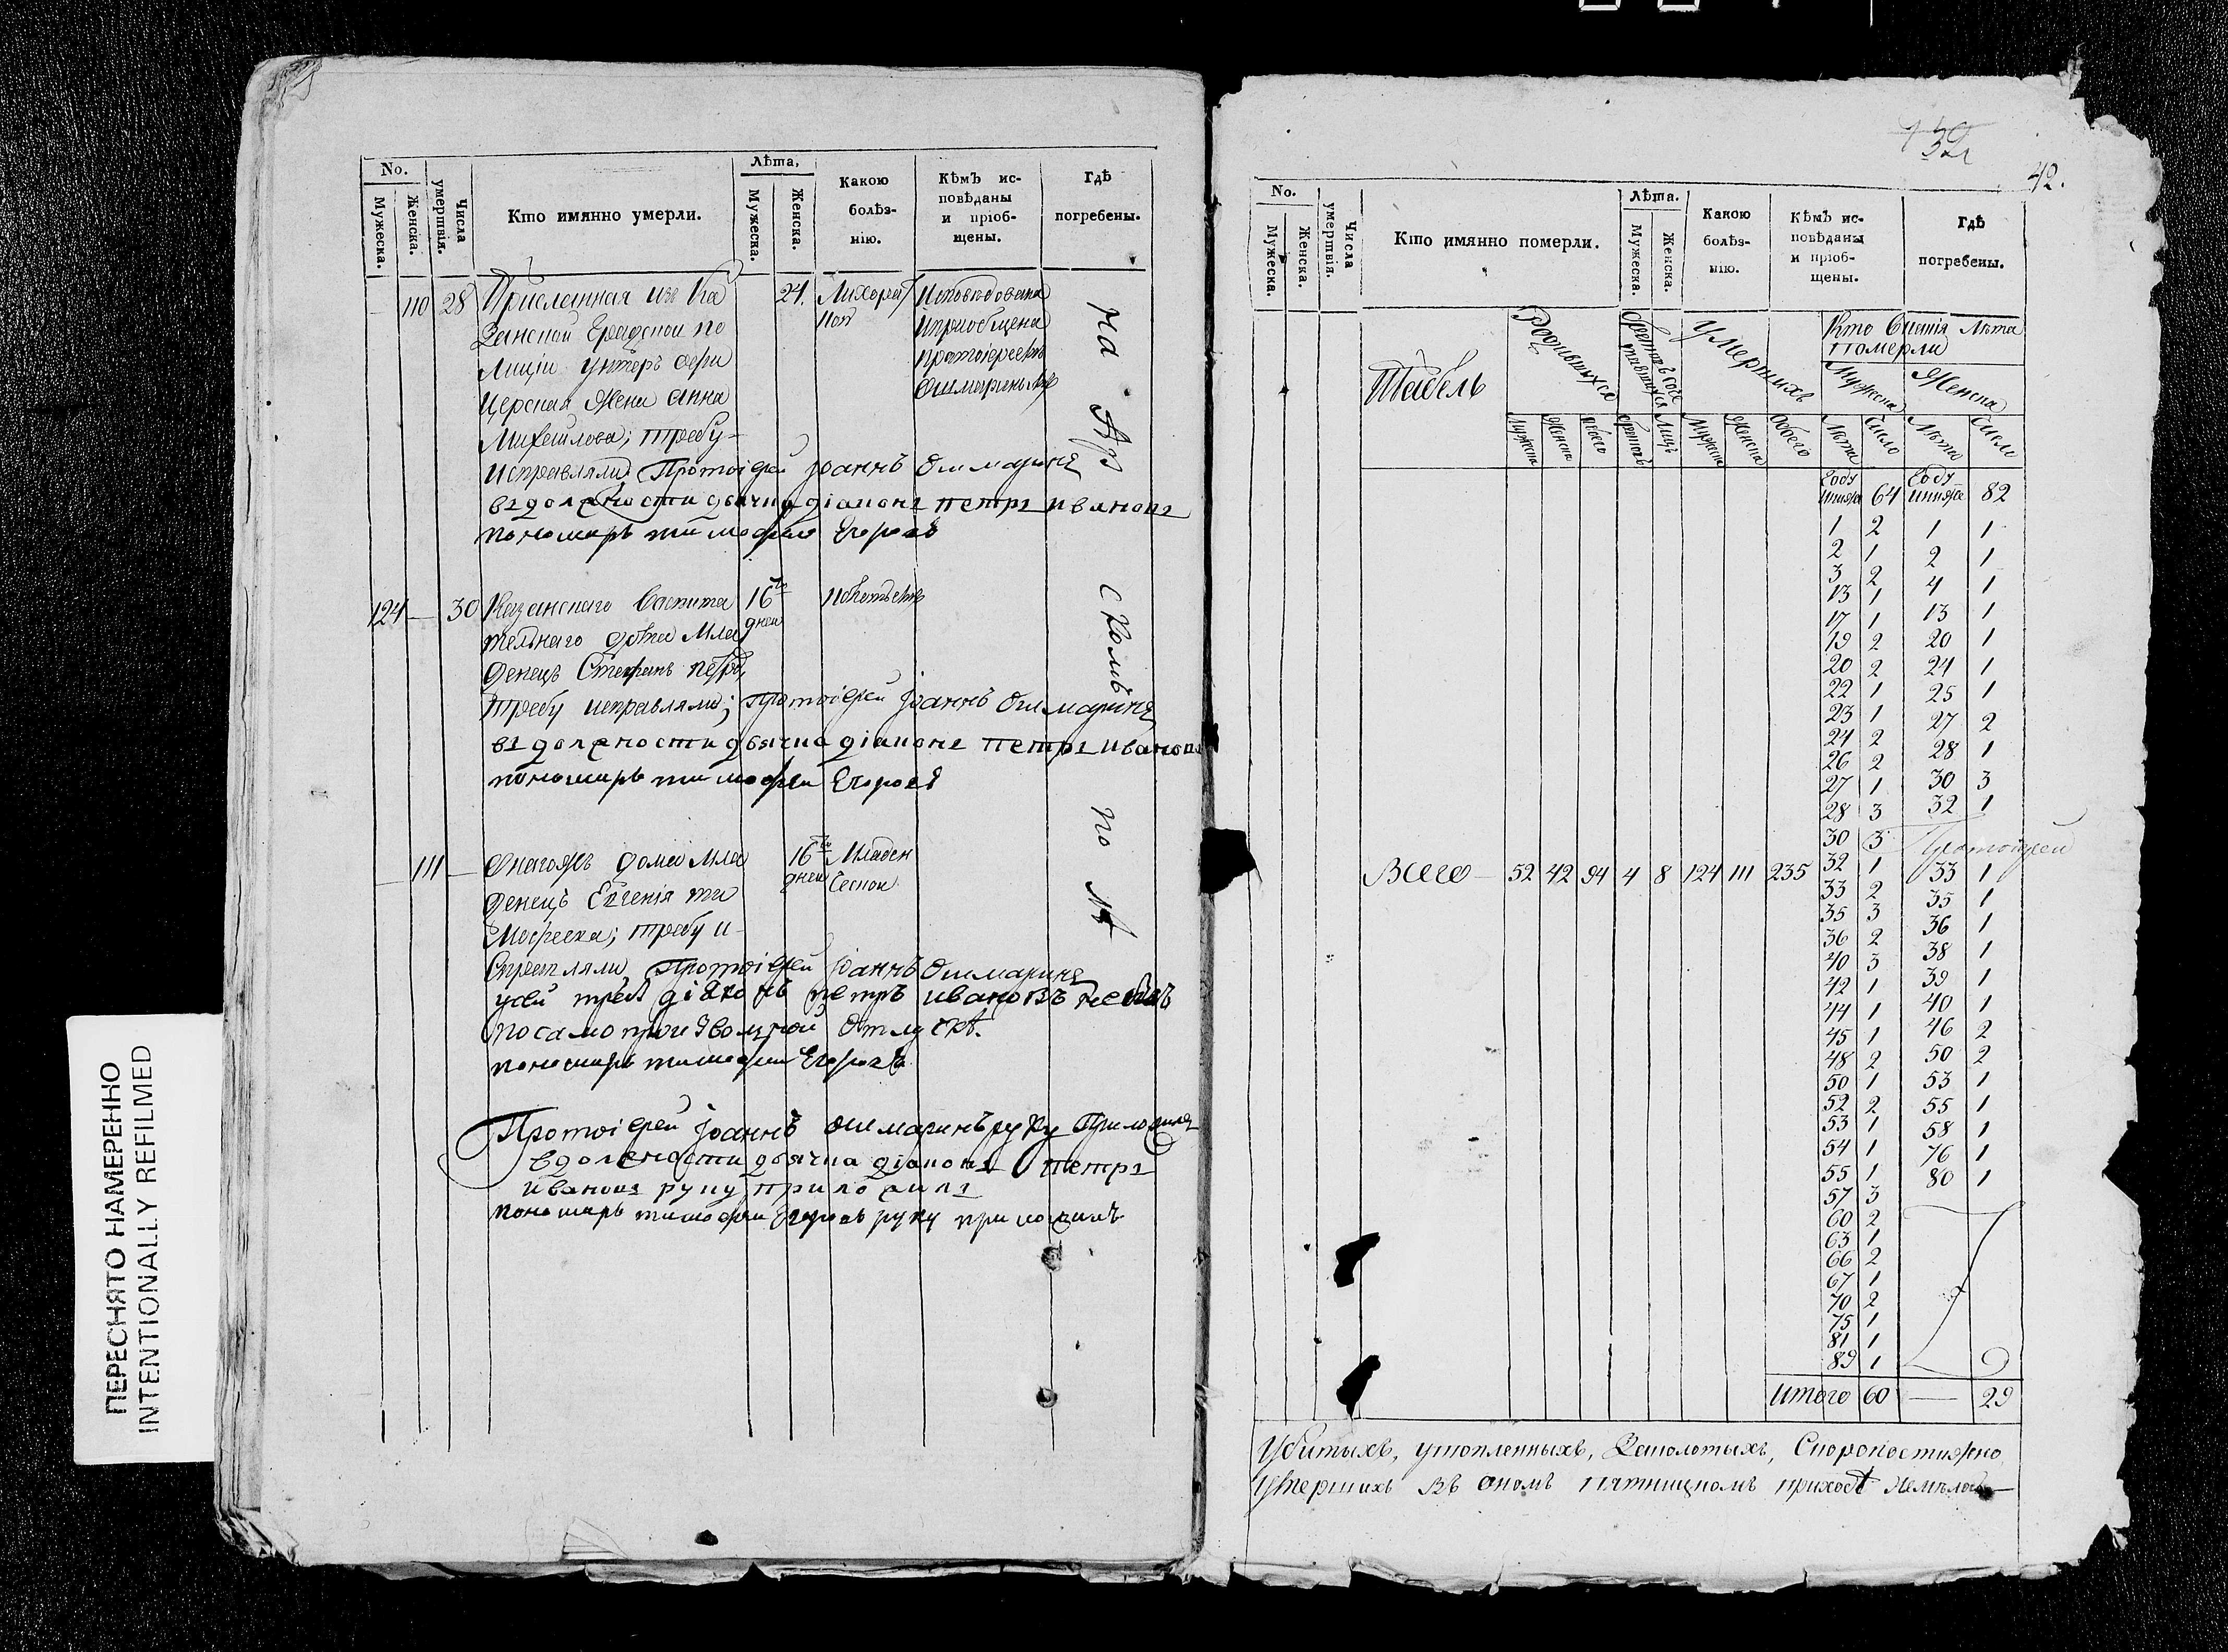 No.
Мужеска.
Женска.
Числа умертвія.
Кто имянно умерли.
Лѣта.
Мужеска.
Женска.
Какою болѣз-
нію.
Кѣмъ ис-
повѣданы
и пріоб-
щены.
Гдѣ
погребены.
— 110 28 Присланная изъ Ка 24. Лихорат
занской Градской по ною
лиціи унтеръ офи
церская жена Анна
Михайлова; требу
Исповѣдована
и приобщена
протоіереемъ
исправляли Протоіерей Іоаннъ Ошмаринъ
въ должности дьячка діаконъ Петръ Ивановъ
пономарь Тимофей Егоровъ
124 — 30 Казанскаго Воспита 16ти
тельнаго дома Мла дней
денецъ Стефанъ
требу исправляли; протоіерей Іоаннъ Ошмаринъ
въ должности дьячка діаконъ Петръ Ивановъ
пономарь Тимофей Егоровъ
— 111 — Онагожъ дома Мла 16ти Младен
денецъ Евгенія Ти дней ческой
мофеева; требу и
справляли Протоіерей Іоаннъ Ошмаринъ
у сей требы діяконъ Петръ Ивановъ не былъ
по самопроизвольной отлускѣ.
пономарь Тимофей Егоровъ
На Ар
скомъ
по лѣ
Протоіерей Іоаннъ Ошмаринъ руку приложилъ
въ должности дьячка діаконъ Петръ
Ивановъ руку приложилъ
пономарь Тимофей Егоровъ руку приложилъ
ПЕРЕСНЯТО НАМЕРЕННО
INTENTIONALLY REFILMED
42.
No.
Мужеска.
Женска.
Числа умертвія.
Кто имянно померли.
Лѣта.
Мужеска.
Женска.
Какою
болѣз-
нію.
Кѣмъ ис-
повѣданы
и пріоб-
щены.
Гдѣ
погребены.
Табель
Родившихся
Умершихъ
Кто Ѣ лѣта
померли
Мужеска
Женска
Мужеска Женска Обоего Браковъ Лицъ Мужеска Женска Обоего Лѣта Число Лѣта Число
Году 64 Году 82
1 2 1 1
2 1 2 1
3 2 4 1
13 1 13 1
17 1 20 1
19 2 24 1
20 2 25 1
22 1 27 2
23 1 28 1
24 2 30 3
26 2 32 1
27 1
28 3
30 3 Протоіерей
Всего — 52 42 94 4 8 124 111 235
32 1 33 1
33 2 35 1
35 3 36 1
36 2 38 1
40 3 39 1
42 1 40 1
44 1 46 2
45 1 50 2
48 2 53 1
50 1 55 1
52 2 58 1
53 1 76 1
54 1 80 1
55 1
57 3
60 2
63 1
66 2
67 1
70 2
75 1
81 1
89 1
Итого 60 — 29
Убитыхъ, утопленныхъ, Заколотыхъ, Скоропостижно
Умершихъ Въ ономъ Пятницкомъ приходѣ